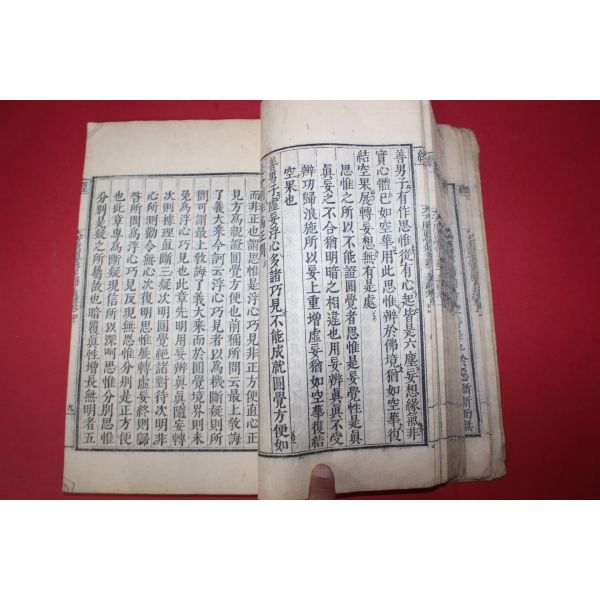 善男子有作思惟從有心起皆是六塵妄想緣氣非
實心體已如空華用此思惟辨於佛境猶如空華復
結空果展轉妄想無有是處
思惟之所以不能證圓覺者思惟是妄覺性是眞
眞妄之不合猶明暗之相違也用妄辨眞眞不受
辨功歸浪施所以妄上重增虛妄猶如空華復結
空果也
善男子虛妄浮心多諸巧見不能成就圓覺方便如
而非正也謂思惟是浮心巧見非正方便直心正
見方爲親證圓覺方便也前獨所問云最上敎誨
了義大乘今訶云浮心巧見者以爲機斷疑則
問可謂最上敎誨了義大乘而於圓覺境界則未
免爲浮心巧見也此章先明用妄辨眞眞隨妄轉
次則據理直斷三疑次明圓覺絶諸對待次乃歸
心所測勸令無心次復明思惟展轉虛妄終則歸
咎所問爲浮心巧見反現無思惟分別是正方便
也此章專爲斷疑現信所以深呵思惟分別思惟
分別是疑之所屬故也暗覆眞性增長無明者五
九